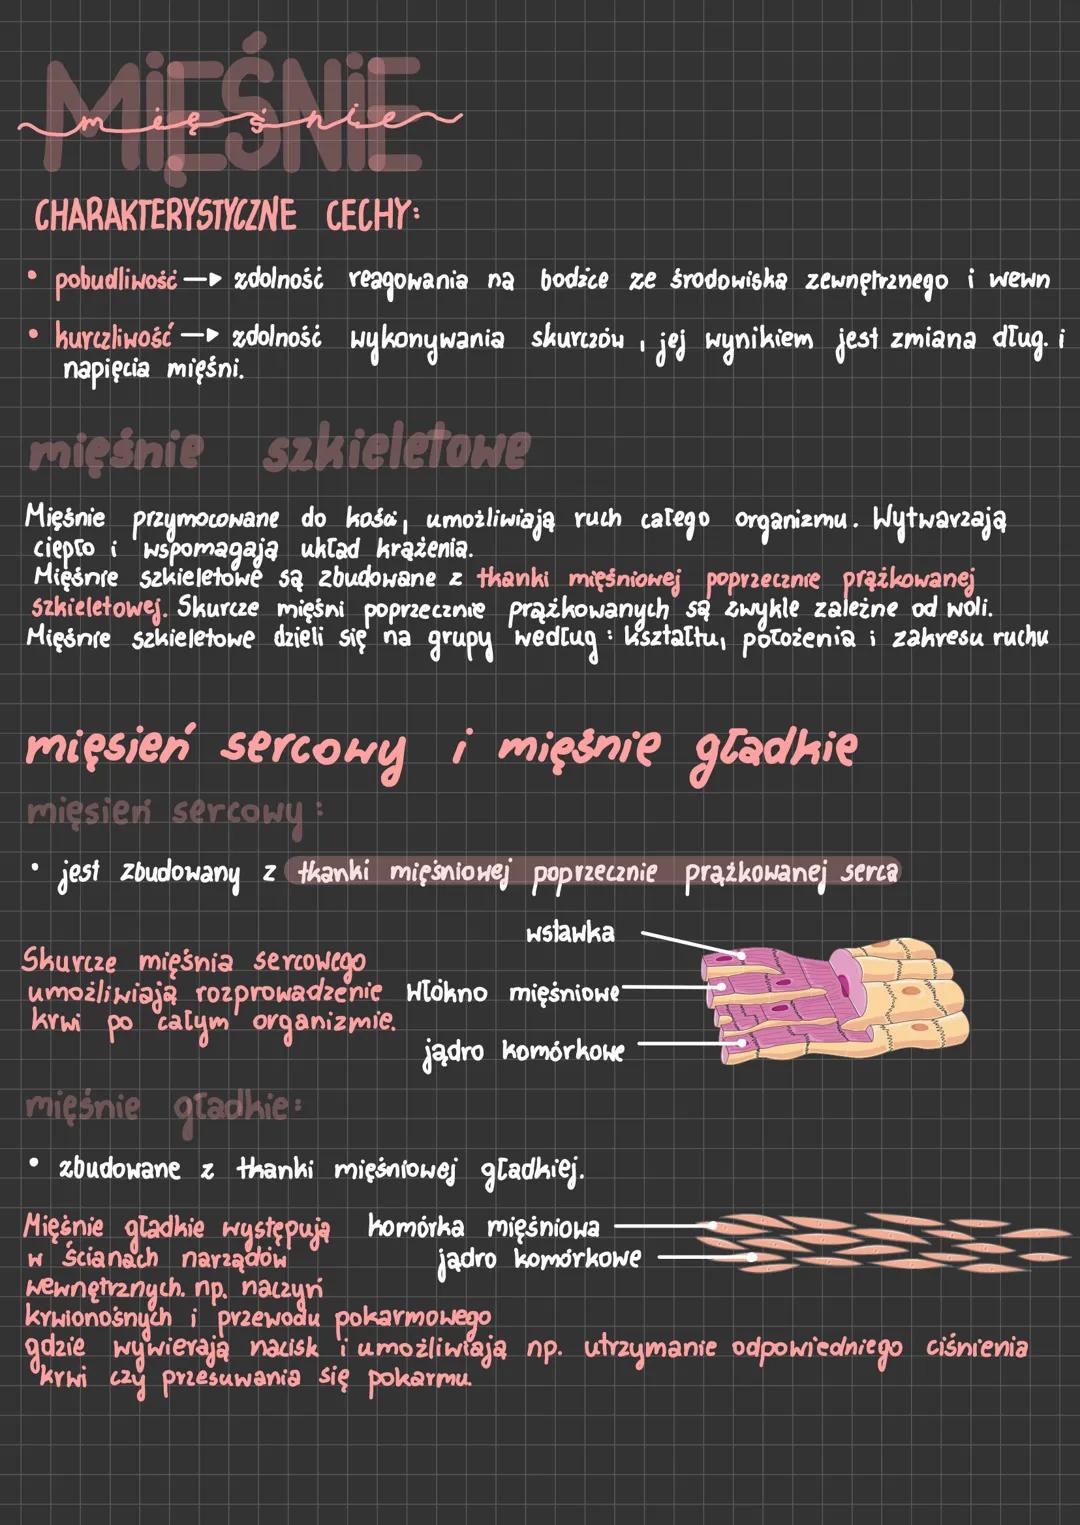 MIĘŚNIE
mięśnie
CHARAKTERYSTYCZNE CECHY:
• pobudliwość → zdolność reagowania na bodźce ze środowiska zewnętrznego i wewn
• kurczliwość → zdolność wykonywania skurczów, jej wynikiem jest zmiana dług. i
napięcia mięśni.
mięśnie szkieletowe
Mięśnie przymocowane do kości, umożliwiają ruch całego organizmu. Wytwarzają
ciepło i wspomagają układ krążenia.
Mięśnie szkieletowe są zbudowane z tkanki mięśniowej poprzecznie prążkowanej
szkieletowej. Skurcze mięśni poprzecznie prążkowanych są zwykle zależne od woli.
Mięśnie szkieletowe dzieli się na grupy według: kształtu, położenia i zakresu ruchu
mięsień sercowy i mięśnie gładkie
mięsień sercowy:
• jest zbudowany z tkanki mięśniowej poprzecznie prążkowanej serca
wstawka
Skurcze mięśnia sercowego
umożliwiają rozprowadzenie
krwi po całym organizmie.
włókno mięśniowe
jądro komórkowe
mięśnie gładkie:
• zbudowane z tkanki mięśniowej gładkiej.
Mięśnie gładkie występują
w ścianach narządów
wewnętrznych. np. naczyń
krwionośnych i przewodu pokarmowego
gdzie wywierają nacisk i umożliwiają np. utrzymanie odpowiedniego ciśnienia
krwi czy przesuwania się pokarmu.
komórka mięśniowa
jądro komórkowe